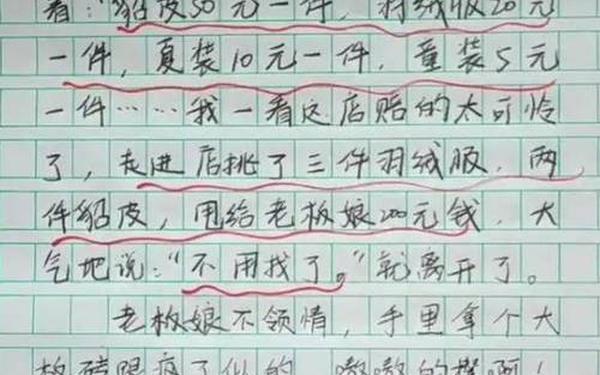 看："貂皮50元一件，羽绒服20元
一件，夏装10元一件，童装5元
一件……我一看这店赔的太可怜
了，走进店挑了三件羽绒服，两
件貂皮，甩给老板娘200元钱，大
气地说："不用找了。"就离开了。
老板娘不领情，手里拿个大
板砖跟疯了似的，嗷嗷的撵啊！